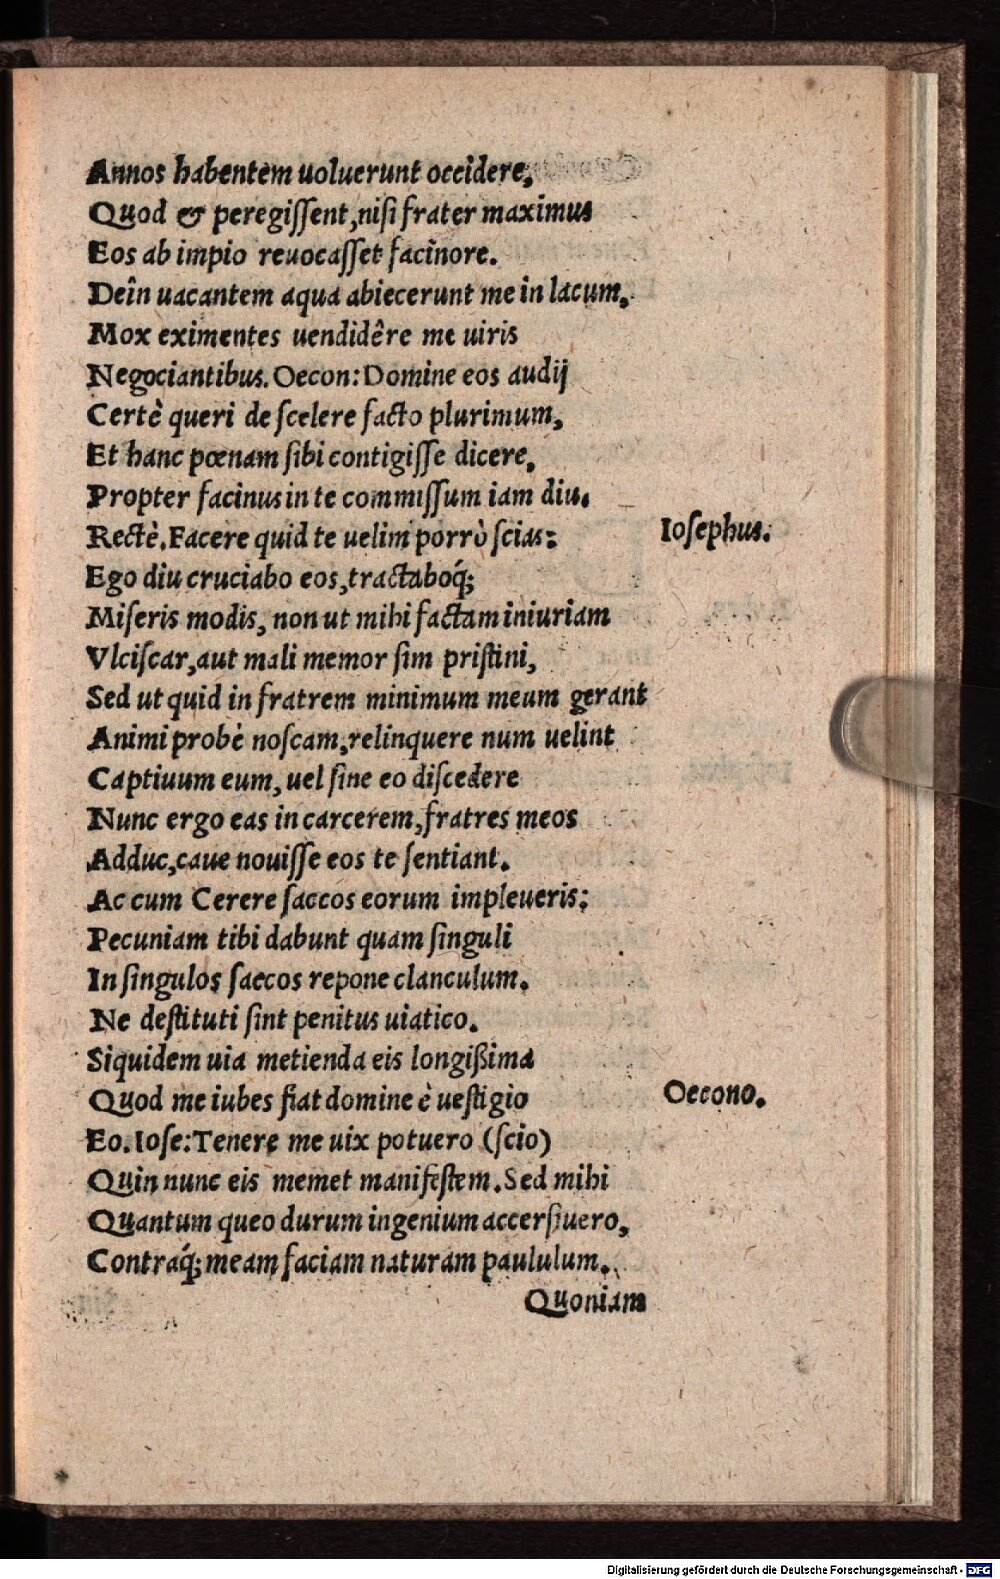 Annos habentem uoluerunt occidere,
Quod & peregiſſent, niſi frater maximus
Eos ab impio reuocaſſet facinore.
Dein uacantem aqua abiecerunt me in lacum.
Mox eximentes uendidêre me uiris
Negociantibus. Oecon: Domine eos audij
Certè queri de ſcelere facto plurimum,
Et hanc pœnam ſibi contigiſſe dicere,
Propter facinus in te commiſſum iam diu.
Rectè. Facere quid te uelim porrò ſcias: Ioſephus.
Ego diu cruciabo eos, tractaboq́;
Miſeris modis, non ut mihi factam iniuriam
Vlciſcar, aut mali memor ſim priſtini,
Sed ut quid in fratrem minimum meum gerant
Animi probè noſcam, relinquere num uelint
Captiuum eum, uel ſine eo diſcedere
Nunc ergo eas in carcerem, fratres meos
Adduc, caue nouiſſe eos te ſentiant.
Ac cum Cerere ſaccos eorum impleueris;
Pecuniam tibi dabunt quam ſinguli
In ſingulos ſaccos repone clanculum.
Ne deſtituti ſint penitus uiatico.
Siquidem uia metienda eis longißima
Quod me iubes fiat domine è ueſtigio Oecono.
Eo. Ioſe: Tenere me uix potuero (ſcio)
Quin nunc eis memet manifeſtem. Sed mihi
Quantum queo durum ingenium accerſiuero,
Contraq́; meam faciam naturam paululum.
Quoniam
Digitalisierung gefördert durch die Deutsche Forschungsgemeinschaft - DFG